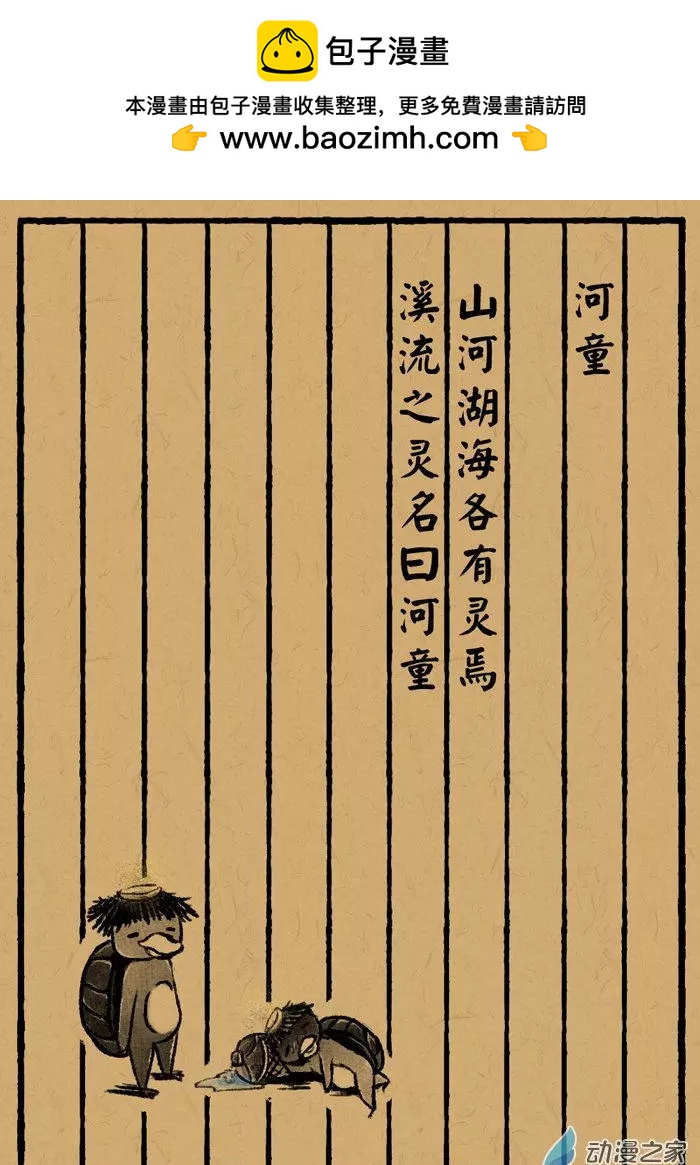 包子漫畫
本漫畫由包子漫畫收集整理，更多免費漫畫請訪問
👉 www.baozimh.com 👈
河童
山河湖海各有灵焉
溪流之灵名曰河童
动漫之家